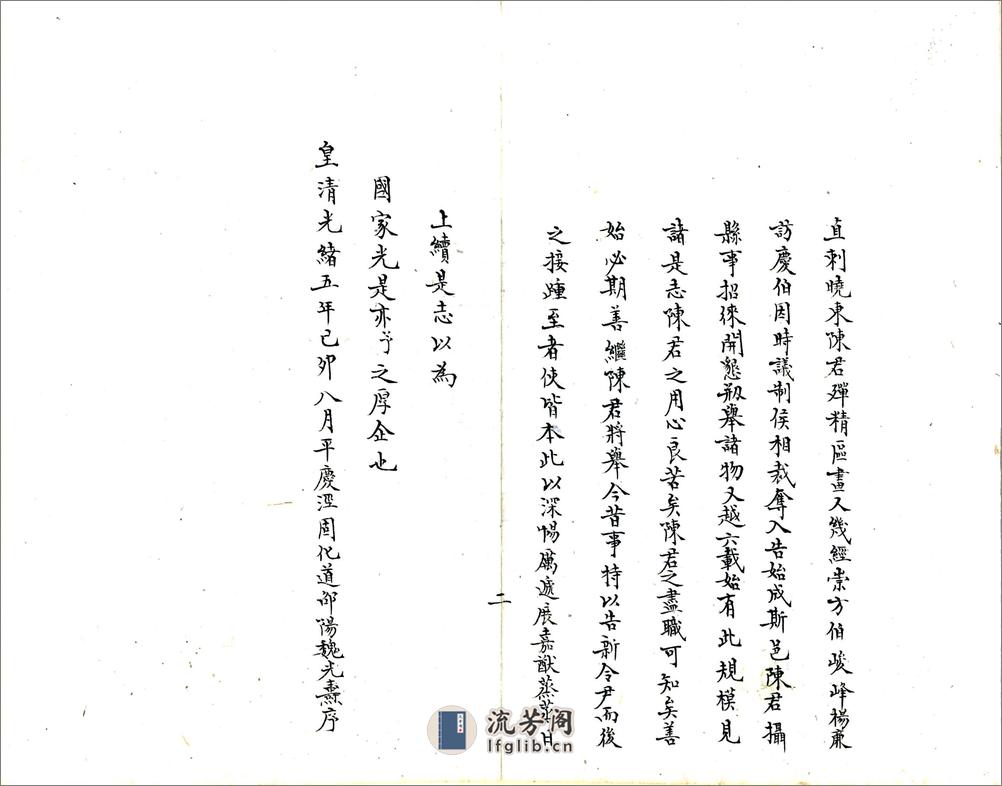 直刺曉東陳君殫精區畫又幾經崇方伯峻峰楊廉
訪慶伯因時議制侯相裁奪入告始成斯邑陳君攝
縣事招徠開懇剏舉諸物又越六載始有此規模見
諸是志陳君之用心良苦矣陳君之盡職可知矣善
始必期善繼陳君將舉今昔事持以告新令尹而後
之接踵至者使皆本此以深惕厲遞展嘉猷蒸蒸日
二
上續是志以為
國家光是亦予之厚企也
皇清光緒五年己卯八月平慶涇固化道邵陽魏光燾序
流芳阁
lfglib.cn